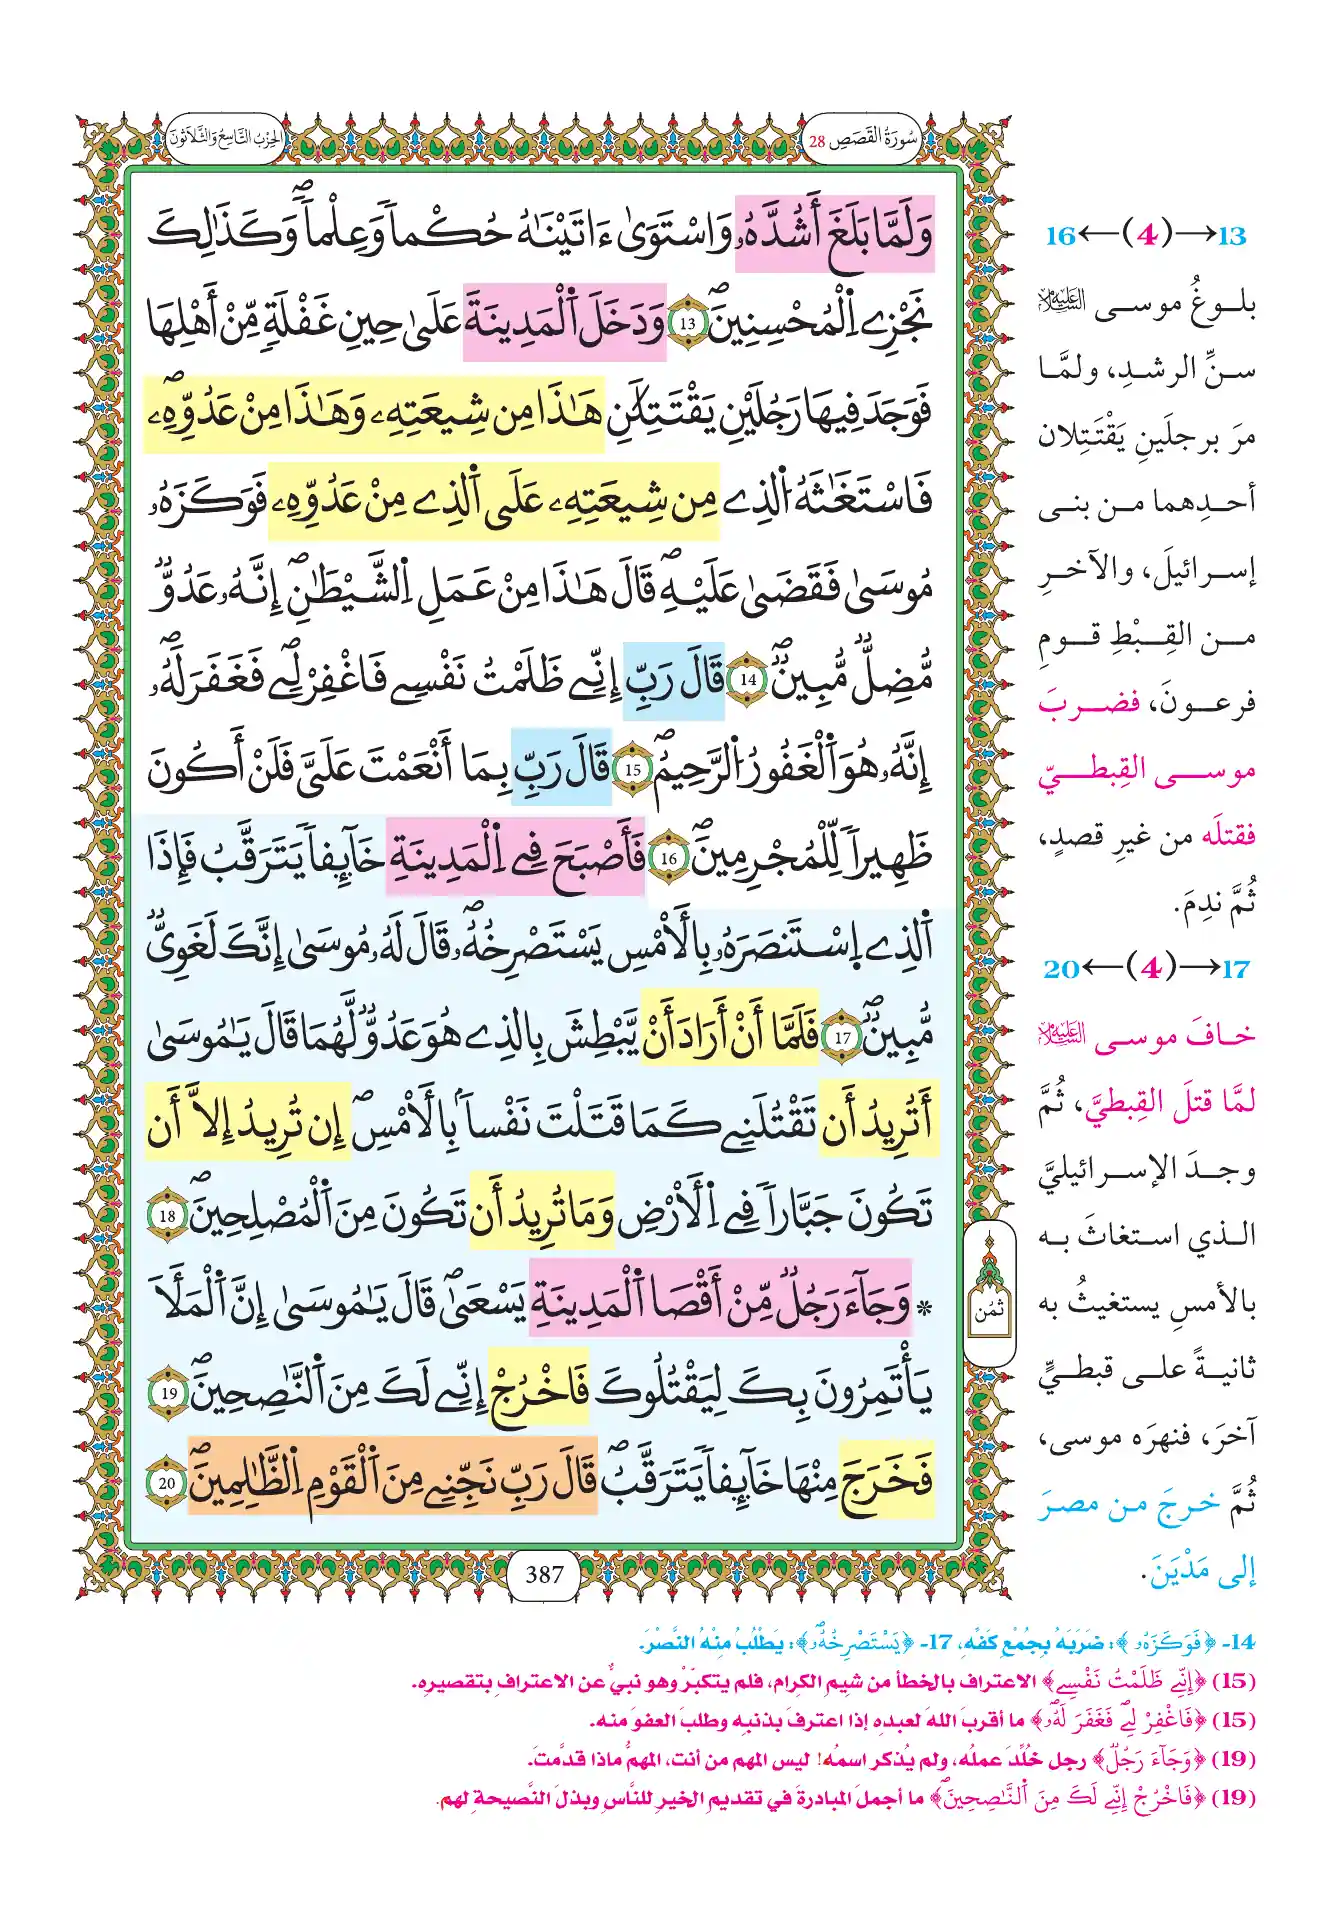 سُورَةُ القَصَصِ 28
الحِزْبُ التَّاسِعُ وَالثَّلَاثُونَ
وَلَمَّا بَلَغَ أَشُدَّهُۥ وَاسْتَوَىٰ ءَاتَيْنَٰهُ حُكْماٗ وَعِلْماٗۖ وَكَذَٰلِكَ
نَجْزِے اِ۬لْمُحْسِنِينَۖ 13 وَدَخَلَ اَ۬لْمَدِينَةَ عَلَىٰ حِينِ غَفْلَةٖ مِّنْ أَهْلِهَا
فَوَجَدَ فِيهَا رَجُلَيْنِ يَقْتَتِلَٰنِ هَٰذَا مِن شِيعَتِهِۦ وَهَٰذَا مِنْ عَدُوِّهِۦۖ
فَاسْتَغَٰثَهُ اُ۬لذِے مِن شِيعَتِهِۦ عَلَى اَ۬لذِے مِنْ عَدُوِّهِۦ فَوَكَزَهُۥ
مُوسَىٰ فَقَضَىٰ عَلَيْهِۖ قَالَ هَٰذَا مِنْ عَمَلِ اِ۬لشَّيْطَٰنِۖ إِنَّهُۥ عَدُوّٞ
مُّضِلّٞ مُّبِينٞۖ 14 قَالَ رَبِّ إِنِّے ظَلَمْتُ نَفْسِے فَاغْفِرْ لِےۖ فَغَفَرَ لَهُۥۖ
إِنَّهُۥ هُوَ اَ۬لْغَفُورُ اُ۬لرَّحِيمُۖ 15 قَالَ رَبِّ بِمَا أَنْعَمْتَ عَلَيَّ فَلَنْ أَكُونَ
ظَهِيراٗ لِّلْمُجْرِمِينَۖ 16 فَأَصْبَحَ فِے اِ۬لْمَدِينَةِ خَآئِفاٗ يَتَرَقَّبُ فَإِذَا
اَ۬لذِے اِ۪سْتَنصَرَهُۥ بِالْأَمْسِ يَسْتَصْرِخُهُۥۖ قَالَ لَهُۥ مُوسَىٰ إِنَّكَ لَغَوِيّٞ
مُّبِينٞۖ 17 فَلَمَّا أَنْ أَرَادَ أَنْ يَّبْطِشَ بِالذِے هُوَ عَدُوّٞ لَّهُمَا قَالَ يَٰمُوسَىٰ
أَتُرِيدُ أَن تَقْتُلَنِے كَمَا قَتَلْتَ نَفْساَۢ بِالْأَمْسِۖ إِن تُرِيدُ إِلَّا أَن
تَكُونَ جَبَّاراٗ فِے اِ۬لْأَرْضِ وَمَا تُرِيدُ أَن تَكُونَ مِنَ اَ۬لْمُصْلِحِينَۖ 18
* وَجَآءَ رَجُلٞ مِّنْ أَقْصَا اَ۬لْمَدِينَةِ يَسْعَىٰۖ قَالَ يَٰمُوسَىٰ إِنَّ اَ۬لْمَلَأَ
يَأْتَمِرُونَ بِكَ لِيَقْتُلُوكَ فَاخْرُجْ إِنِّے لَكَ مِنَ اَ۬لنَّٰصِحِينَۖ 19
فَخَرَجَ مِنْهَا خَآئِفاٗ يَتَرَقَّبُۖ قَالَ رَبِّ نَجِّنِے مِنَ اَ۬لْقَوْمِ اِ۬لظَّٰلِمِينَۖ 20
ثُمُن
387
13←(4)←16
بلوغُ موسى عليه السلام
سنِّ الرشدِ، ولمَّا
مرَ برجلَينِ يَقْتَتِلان
أحدِهما من بنى
إسرائيلَ، والآخرِ
من القِبْطِ قومِ
فرعونَ، فضربَ
موسى القِبطيّ
فقتلَه من غيرِ قصدٍ،
ثُمَّ ندِمَ.
17←(4)←20
خافَ موسى عليه السلام
لمَّا قتلَ القِبطيَّ، ثُمَّ
وجدَ الإسرائيليَّ
الذي استغاثَ به
بالأمسِ يستغيثُ به
ثانيةً على قبطيٍّ
آخرَ، فنهرَه موسى،
ثُمَّ خرجَ من مصرَ
إلى مَدْيَنَ.
14- ﴿فَوَكَزَهُۥ﴾: ضَرَبَهُ بِجُمْعِ كَفِّهِ، 17- ﴿يَسْتَصْرِخُهُۥۖ﴾: يَطْلُبُ مِنْهُ النَّصْرَ.
(15) ﴿إِنِّے ظَلَمْتُ نَفْسِے﴾ الاعتراف بالخطأ من شيمِ الكرام، فلم يتكبّرْ وهو نبيٌّ عن الاعترافِ بتقصيرِه.
(15) ﴿فَاغْفِرْ لِےۖ فَغَفَرَ لَهُۥۖ﴾ ما أقربَ اللهَ لعبدِه إذا اعترفَ بذنبِه وطلبَ العفوَ منه.
(19) ﴿وَجَآءَ رَجُلٞ﴾ رجل خُلِّدَ عملُه، ولم يُذكر اسمُه! ليس المهم من أنت، المهمُّ ماذا قدَّمتَ.
(19) ﴿فَاخْرُجْ إِنِّے لَكَ مِنَ اَ۬لنَّٰصِحِينَۖ﴾ ما أجملَ المبادرةَ في تقديمِ الخيرِ للنَّاسِ وبذلَ النَّصيحةِ لهم.